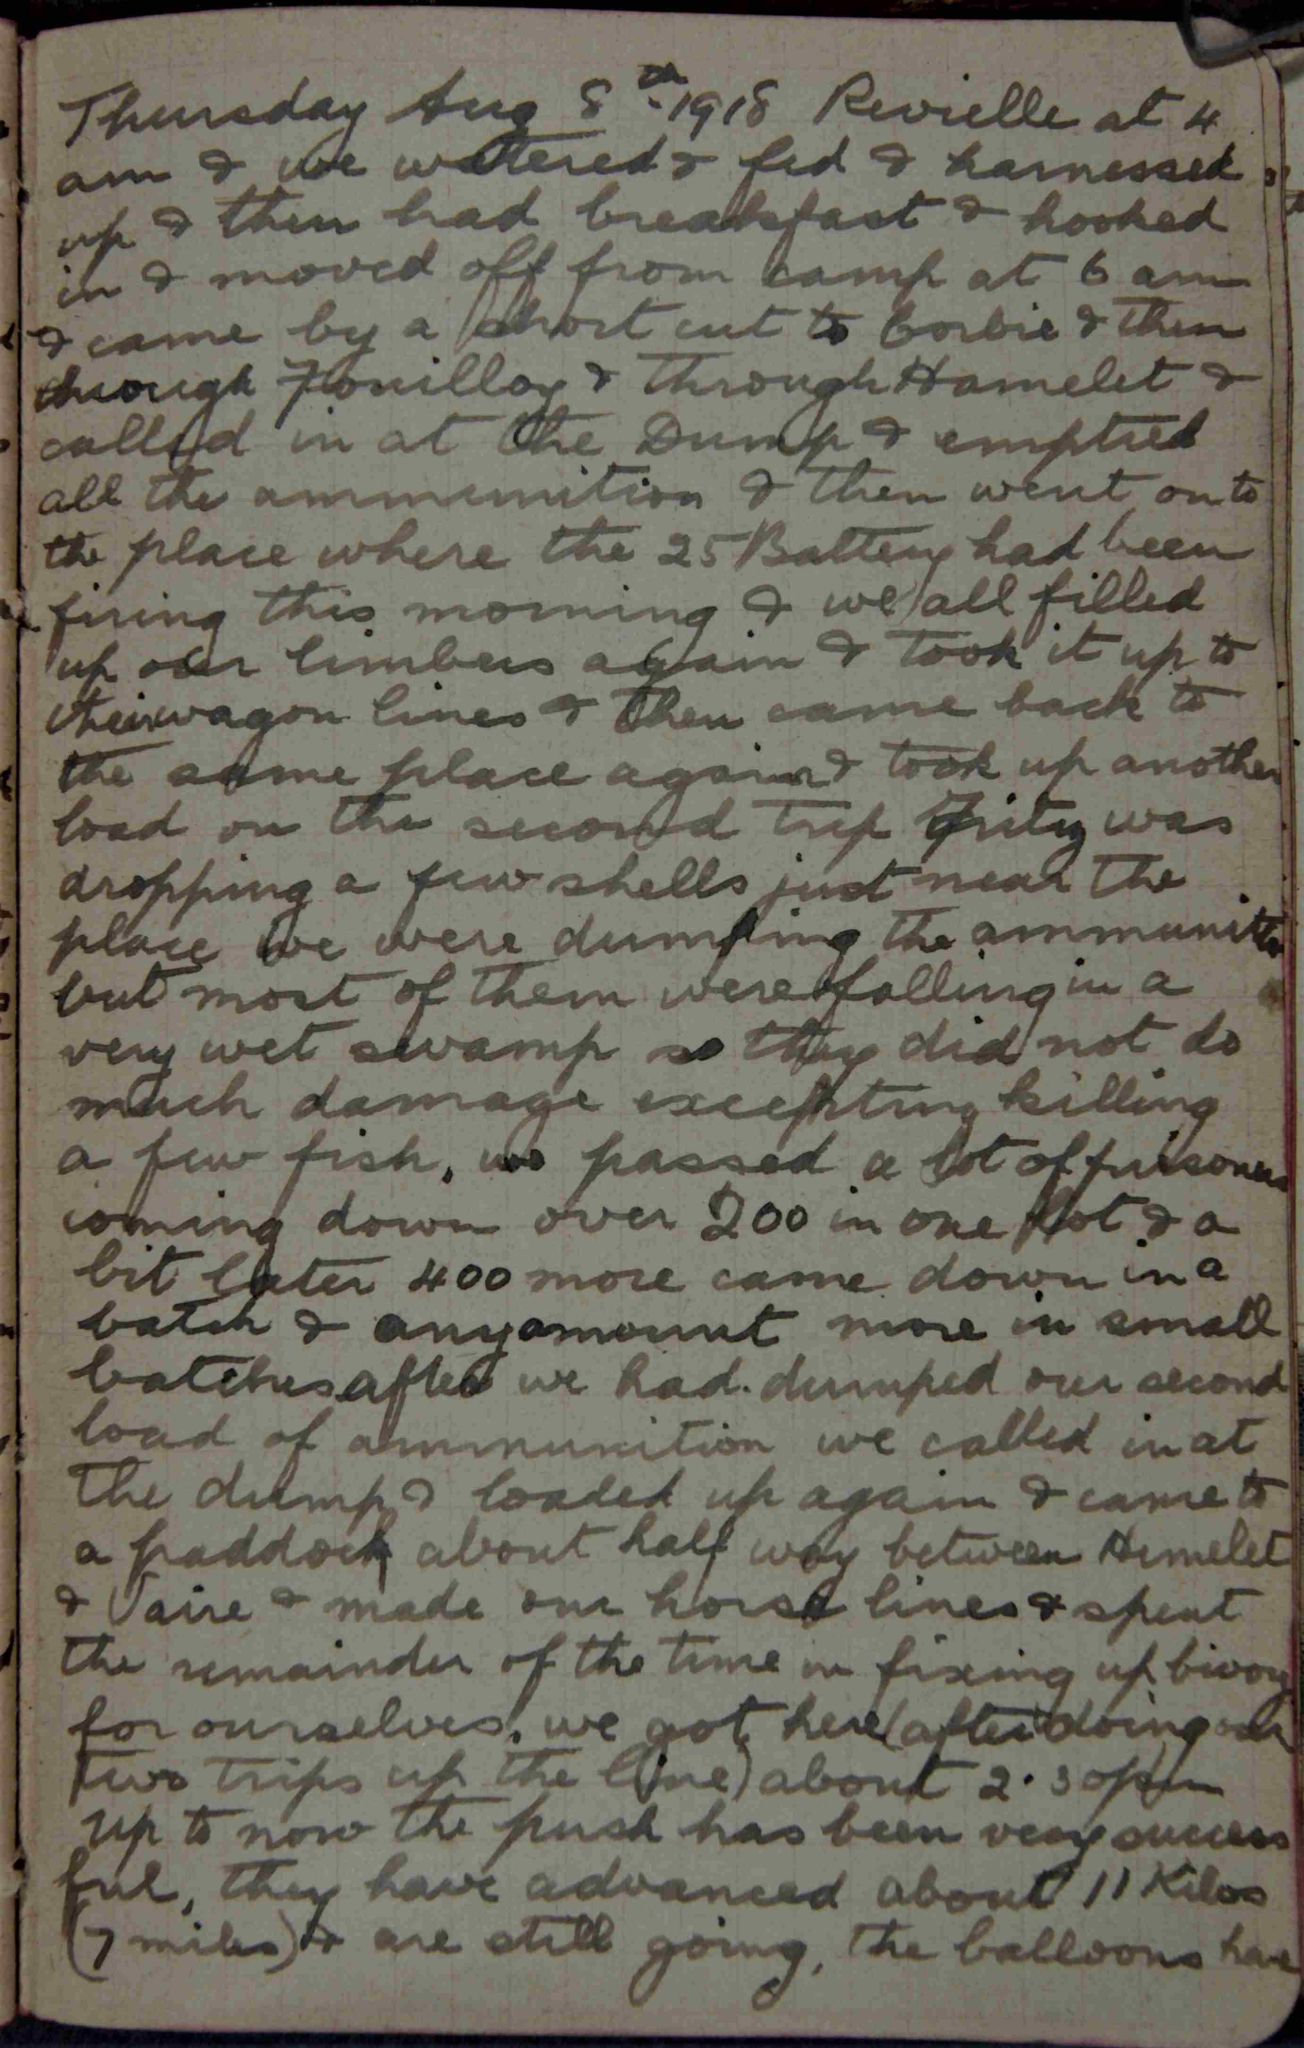 Thursday Aug 8th 1918 Revielle at 4
am & we watered & fed & harnessed
up & then had breakfast & hooked
in & moved off from camp at 6 am
& came by a short cut to Corbie & then
through Fouilloy & through Hamelet &
called in at the Dump & emptied
all the ammunition & then went on to
the place where the 25 Battery had been
firing this morning & we all filled
up our limbers again & took it up to
their wagon lines & then came back to
the same place again & took up another
load on the second trip Fritz was
dropping a few shells just near the
place we were dumping the ammunition
but most of them were falling in a
very wet swamp so they did not do
much damage excepting killing
a few fish, we passed a lot of prisoners
coming down over 200 in one lot & a
bit later 400 more came down in a
batch & any amount more in small
batches after we had dumped our second
load of ammunition we called in at
the dump & loaded up again & came to
a paddock about half way between Hamelet
& Vaire & made our horse lines & spent
the remainder of the time in fixing up bivoys
for ourselves. we got here (after doing our
two trips up the line) about 2.30 pm
up to now the push has been very success
ful, they have advanced about 11 Kilos
(7 miles) & are still going, the balloons have